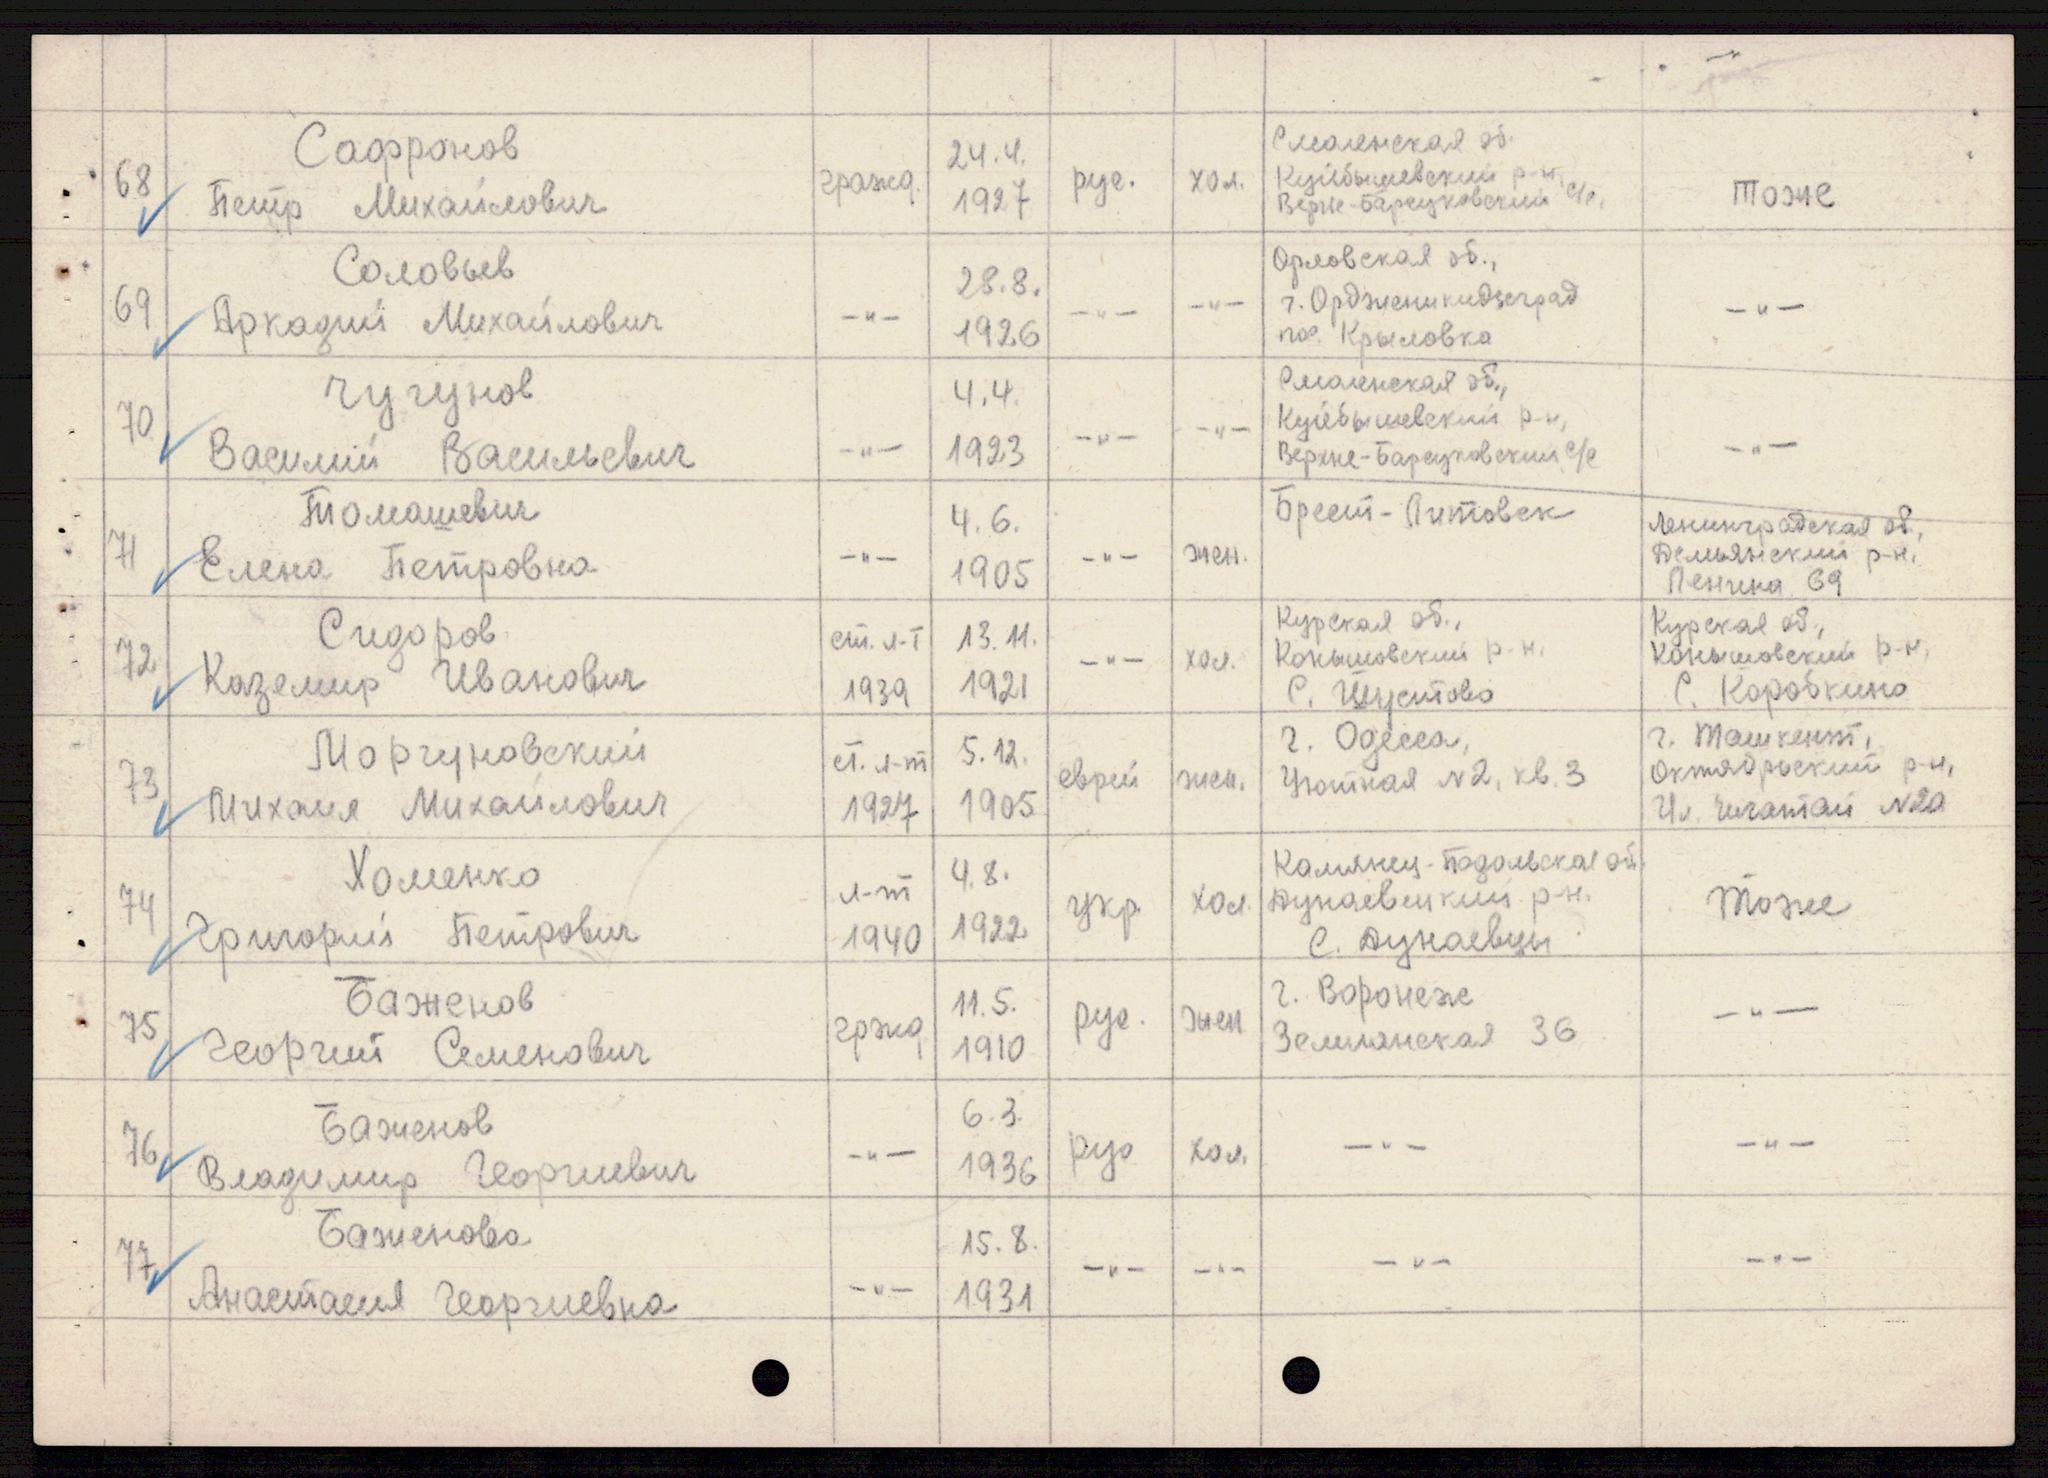 68 Сафронов
Петр Михайлович гражд. 24.4. 1927 рус. хол. Смоленская об. Куйбышевский р-н, Верхне-Барсуковский с/с, тоже
69 Соловьев
Аркадий Михайлович –"– 28.8. 1926 –"– –"– Орловская об., г. Орджоникидзеград пос. Крыловка –"–
70 Чугунов
Василий Васильевич –"– 4.4. 1923 –"– –"– Смоленская об., Куйбышевский р-н, Верхне-Барсуковский с/с –"–
71 Томашевич
Елена Петровна –"– 4.6. 1905 –"– жен. Брест-Литовск Ленинградская об., Демьянский р-н, Ленина 69
72 Сидоров
Каземир Иванович ст. л-т 1939 13.11. 1921 –"– хол. Курская об., Конышовский р-н, С. Шустово Курская об., Конышовский р-н, С. Коробкино
73 Моргуновский
Михаил Михайлович ст. л-т 1927 5.12. 1905 еврей жен. г. Одесса, Уютная N2, кв. 3 г. Ташкент, Октябрьский р-н, Ул. Чегатай N20
74 Хоменко
Григорий Петрович л-т 1940 4.8. 1922 укр. хол. Камянец-Подольская об. Дунаевецкий р-н. С. Дунаевцы Тоже
75 Баженов
Георгий Семенович гржд 11.5. 1910 рус. жен г. Воронеж Землянская 36 –"–
76 Баженов
Владимир Георгиевич –"– 6.3. 1936 рус хол. –"– –"–
77 Баженова
Анастасия Георгиевна –"– 15.8. 1931 –"– –"– –"– –"–